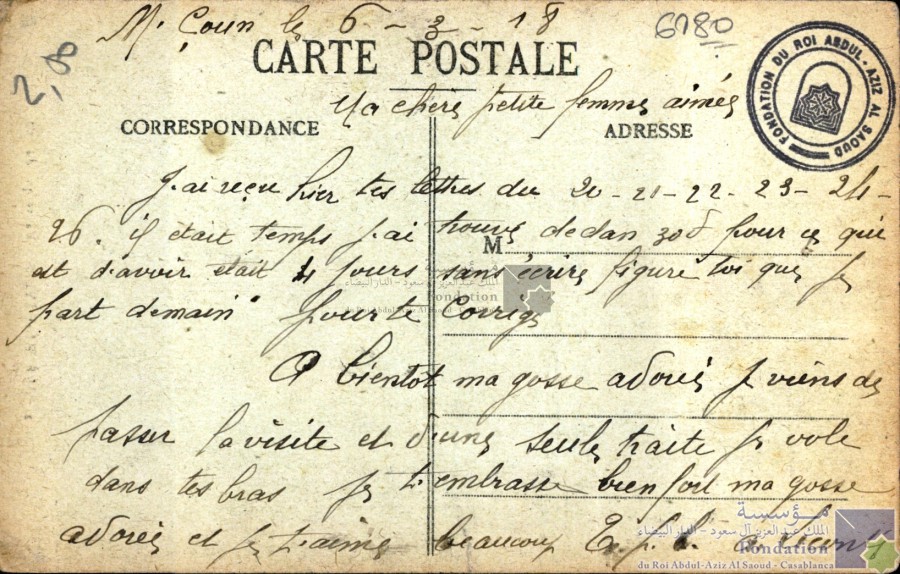 M. Çoun le 6 - 3 - 18
6180
2,00
CARTE POSTALE
FONDATION DU ROI ABDUL-AZIZ AL SAOUD
Ma chère petite femme aimée
CORRESPONDANCE
ADRESSE
J'ai reçu hier tes lettres du 20 - 21 - 22 - 23 - 24 -
26. il était temps j'ai trouvé dedan 30f pour ce qui
M
est d'avoir était 4 jours sans écrire figure toi que je
part demain pour te Corrigé
A bientot ma gosse adorée je viens de
passer la visite et d'une seule traite je vole
dans tes bras je t'embrasse bien fort ma gosse
adorée et je t'aime beaucoup
مؤسسة
الملك عبد العزيز آل سعود - الدار البيضاء
Fondation
du Roi Abdul-Aziz Al Saoud - Casablanca